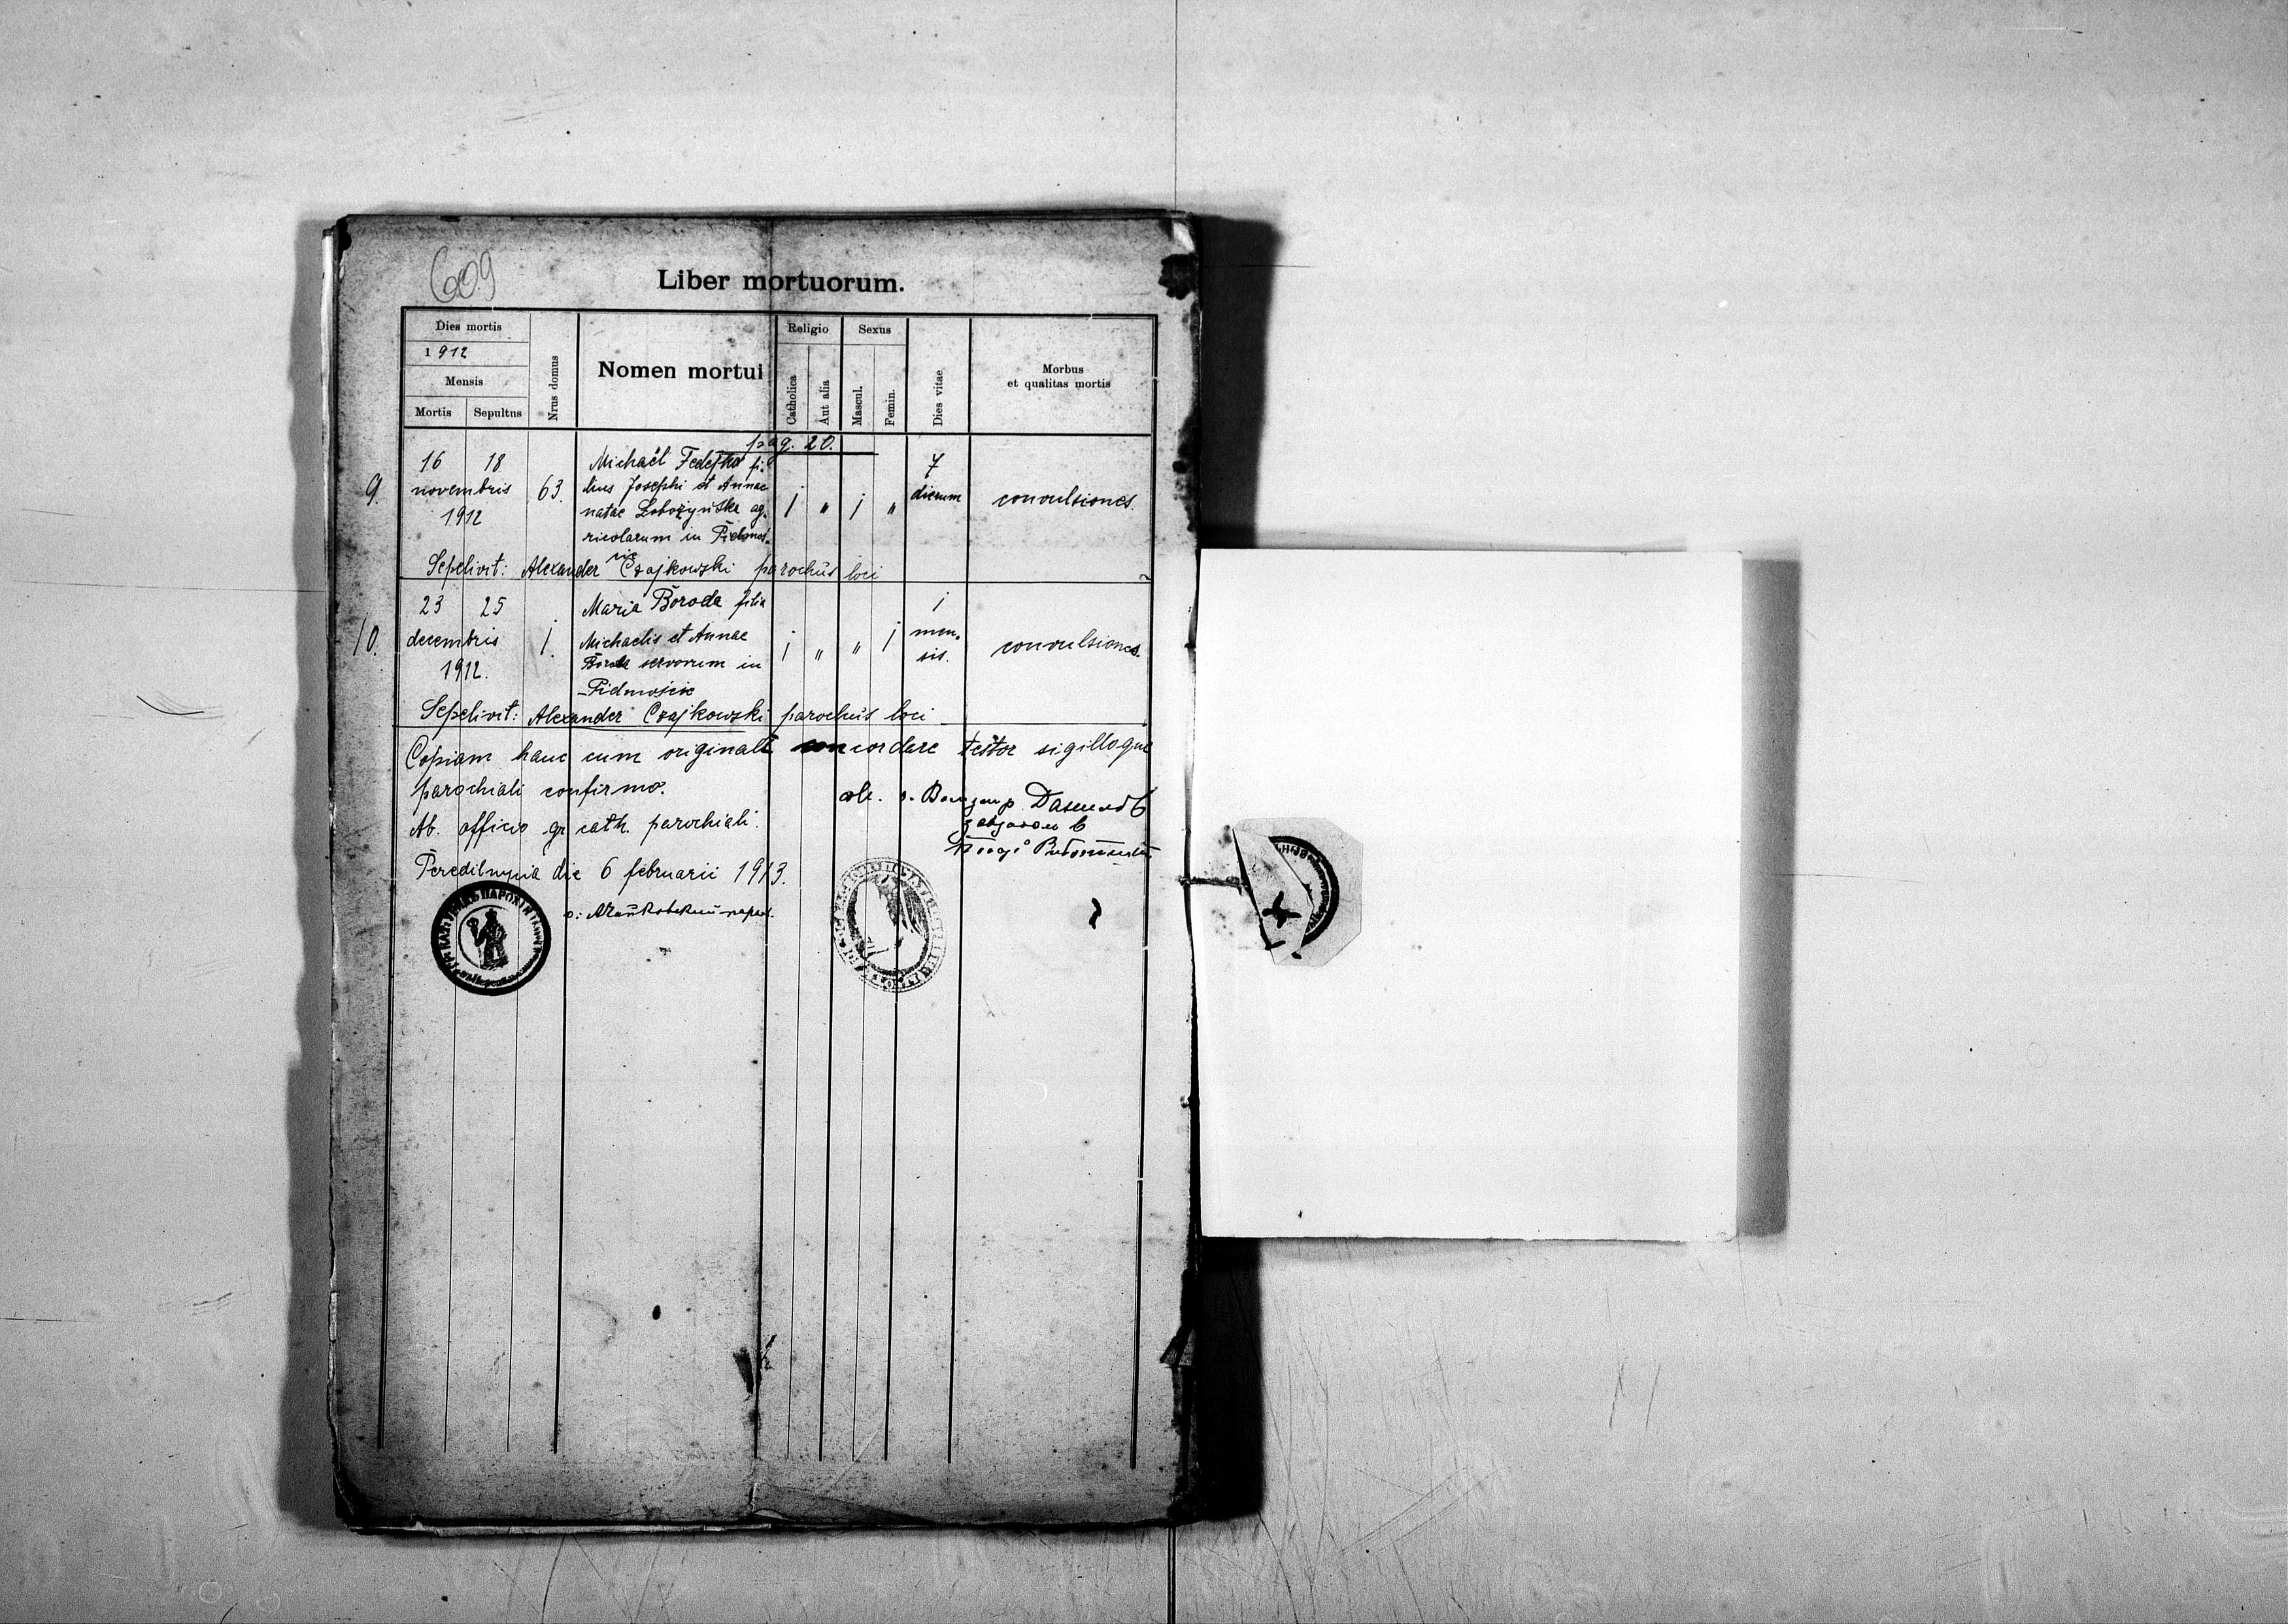 609
Liber mortuorum.
Dies mortis
1912
Mensis
Mortis Sepultus
Nrus domus
Nomen mortui
Religio
Catholica
Aut alia
Sexus
Mascul.
Femin.
Dies vitae
Morbus
et qualitas mortis
pag. 20.
9.
16 18
novembris
1912
63.
Michaël Fedejko fi-
lius Josephi et Annae
natae ag-
ricolarum in Pidmoś-
cie
1 " 1 "
7
dierum
convulsiones.
Sepelivit: Alexander Czajkowski parochus loci
10.
23 25
decembris
1912.
1.
Maria Boroda filia
Michaelis et Annae
Boroda servorum in
Pidmoście
1 " " 1
1
men-
sis.
convulsiones.
Sepelivit: Alexander Czajkowski parochus loci
Copiam hanc cum originali concordare testor sigilloque
parochiali confirmo.
Ab officio gr. cath. parochiali.
Peredilnycia die 6 februarii 1913.